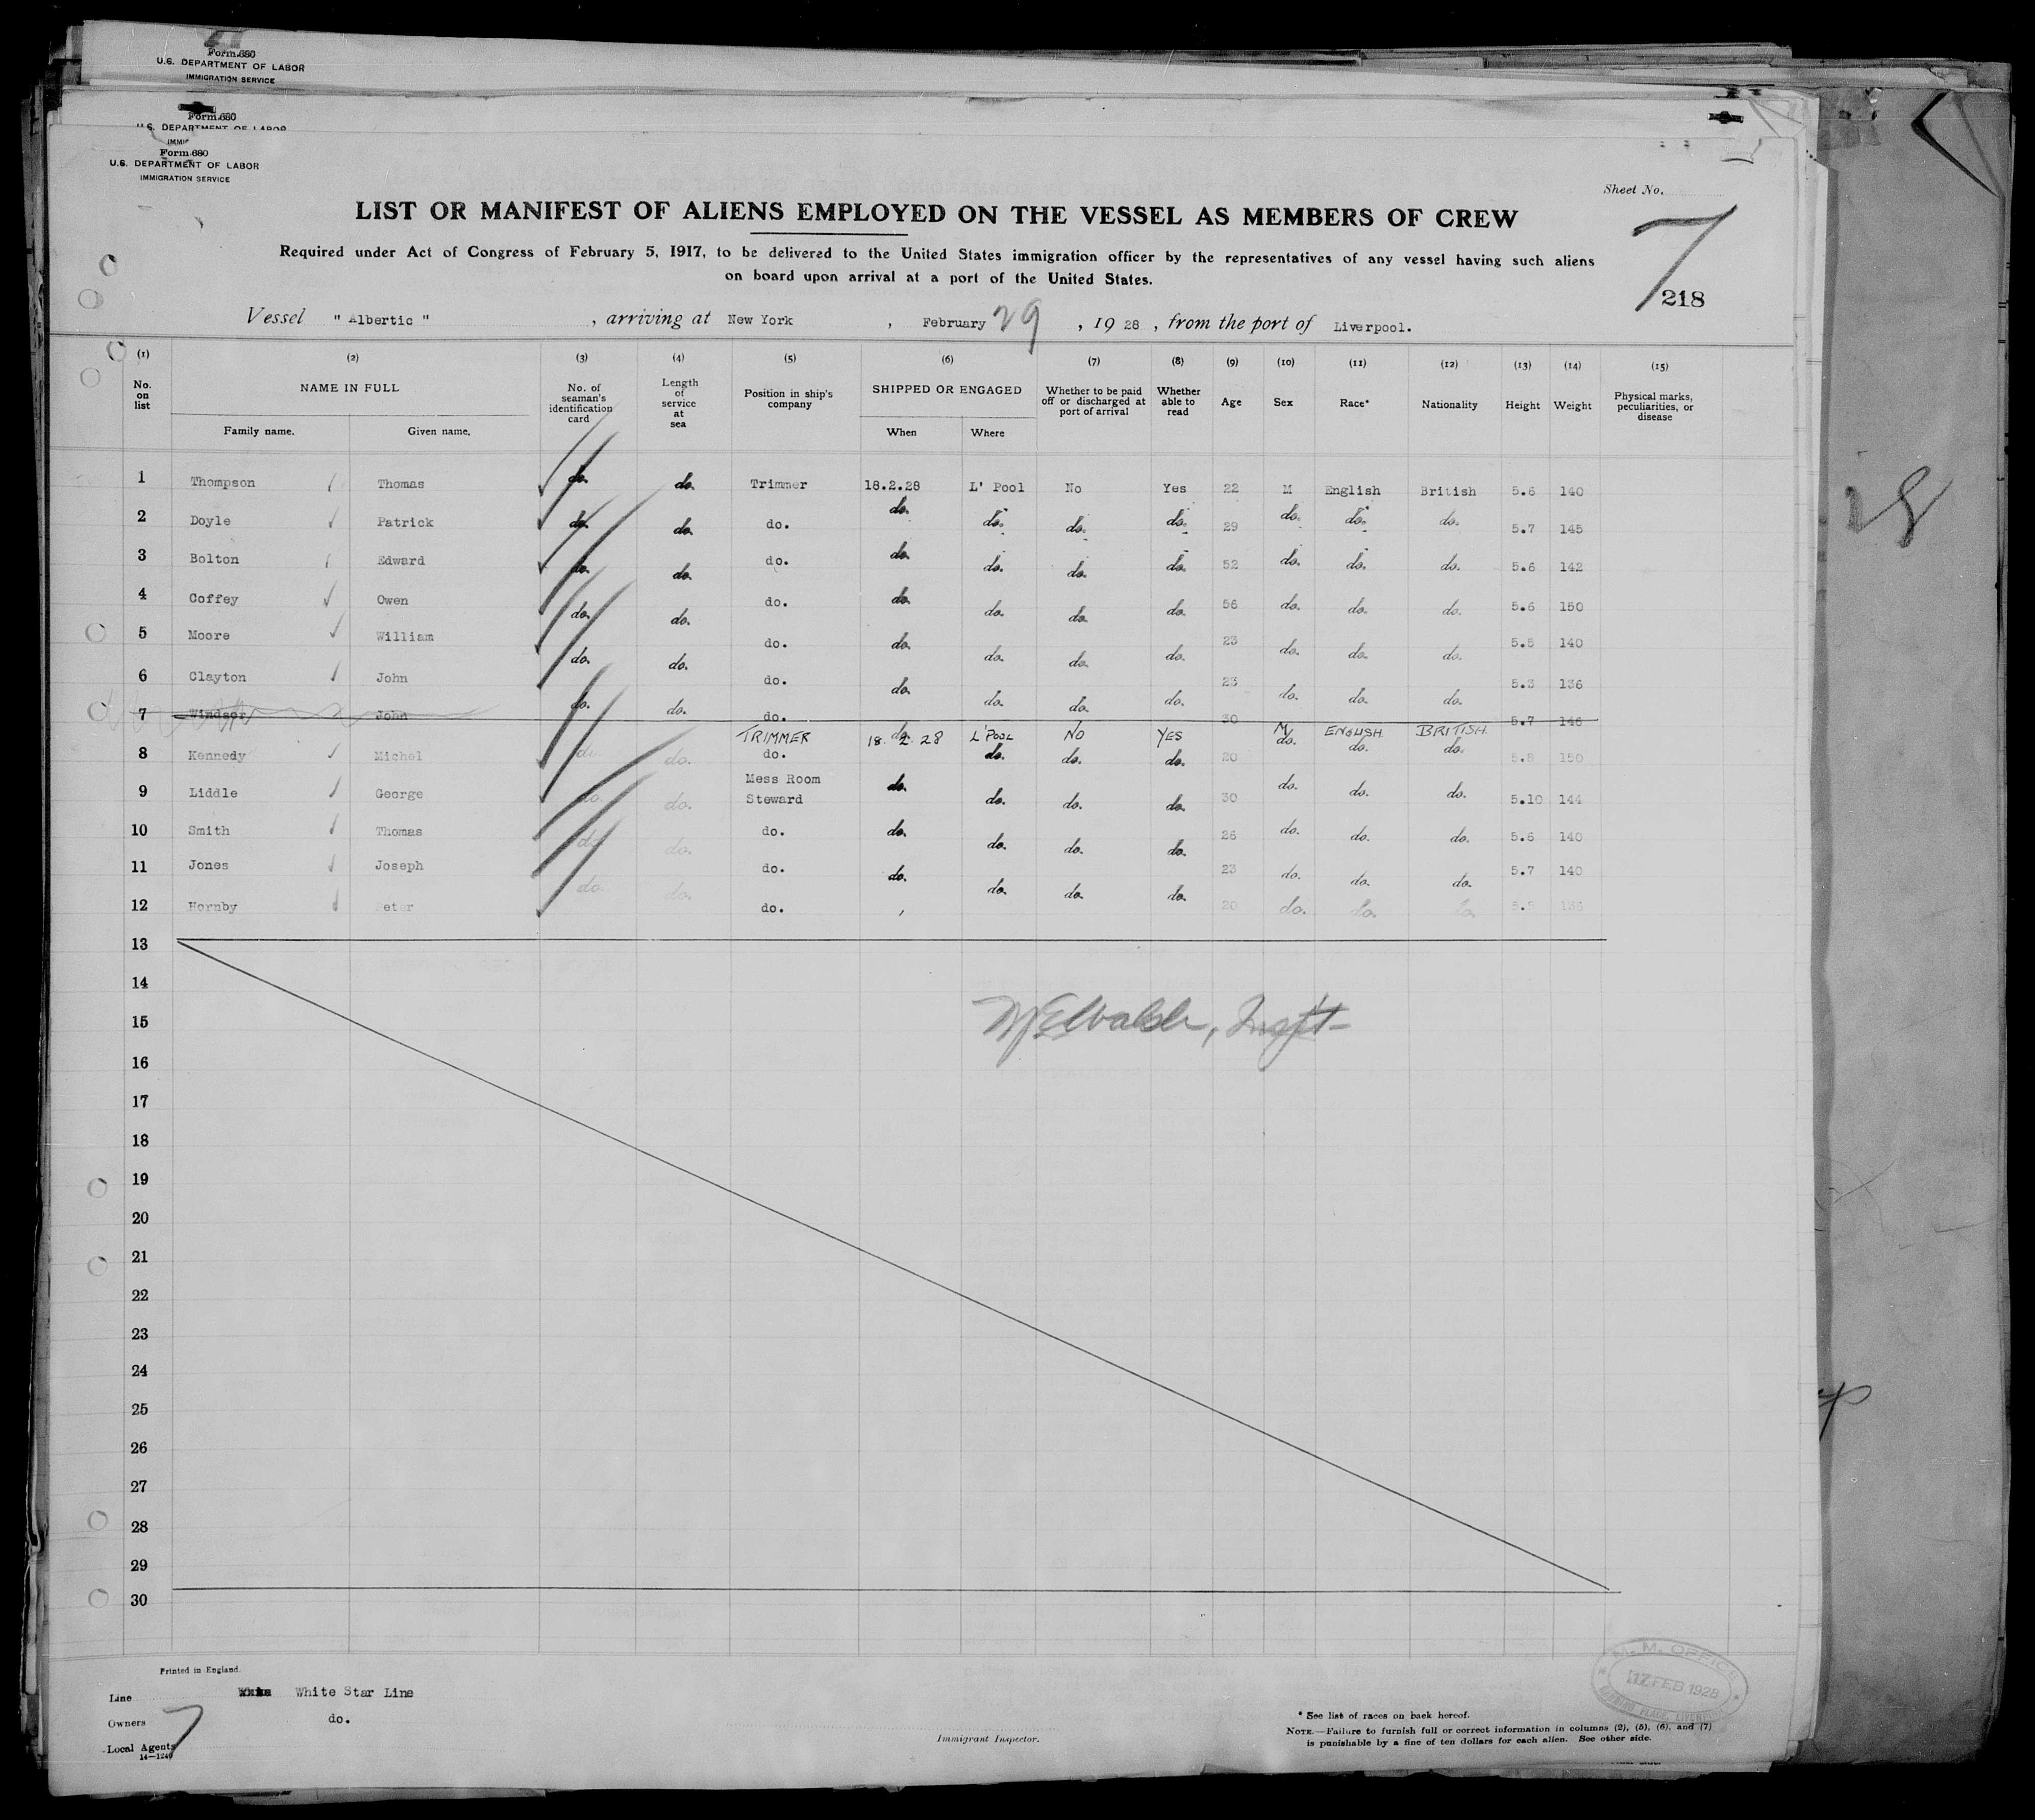 Form 680
U.S. DEPARTMENT OF LABOR
IMMIGRATION SERVICE
Form 680
U.S. DEPARTMENT OF LABOR
IMMI
Form 680
U.S. DEPARTMENT OF LABOR
IMMIGRATION SERVICE
Sheet No.
7
218
LIST OR MANIFEST OF ALIENS EMPLOYED ON THE VESSEL AS MEMBERS OF CREW
Required under Act of Congress of February 5, 1917, to be delivered to the United States immigration officer by the representatives of any vessel having such aliens
on board upon arrival at a port of the United States.
Vessel " Albertic " , arriving at New York , February 29 , 19 28 , from the port of Liverpool.
(1) (2) (3) (4) (5) (6) (7) (8) (9) (10) (11) (12) (13) (14) (15)
No. on list NAME IN FULL No. of seaman's identification card Length of service at sea Position in ship's company SHIPPED OR ENGAGED Whether to be paid off or discharged at port of arrival Whether able to read Age Sex Race* Nationality Height Weight Physical marks, peculiarities, or disease
Family name. Given name. When Where
1 Thompson Thomas do. do. Trimmer 18.2.28 L' Pool No Yes 22 M English British 5.6 140
2 Doyle Patrick do. do. do. do. do. do. do. 29 do. do. do. 5.7 145
3 Bolton Edward do. do. do. do. do. do. do. 52 do. do. do. 5.6 142
4 Coffey Owen do. do. do. do. do. do. do. 56 do. do. do. 5.6 150
5 Moore William do. do. do. do. do. do. do. 23 do. do. do. 5.5 140
6 Clayton John do. do. do. do. do. do. do. 23 do. do. do. 5.3 136
7 Windsor John do. 30 5.7 146
TRIMMER 18. 2 28 L'POOL NO YES M ENGLISH BRITISH
8 Kennedy Michel do. do. do. do. do. do. do. 20 do. do. do. 5.8 150
9 Liddle George do. do. Mess Room Steward do. do. do. do. 30 do. do. do. 5.10 144
10 Smith Thomas do. do. do. do. do. do. do. 26 do. do. do. 5.6 140
11 Jones Joseph do. do. do. do. do. do. do. 23 do. do. do. 5.7 140
12 Hornby Peter do. 20 do. do. do. 5.5 136
13
14
15
16
17
18
19
20
21
22
23
24
25
26
27
28
29
30
Printed in England.
Line White Star Line
Owners do.
Local Agents
14—1240
7
Immigrant Inspector.
M. M. OFFICE
17 FEB 1928
* See list of races on back hereof.
NOTE.—Failure to furnish full or correct information in columns (2), (5), (6), and (7)
is punishable by a fine of ten dollars for each alien. See other side.